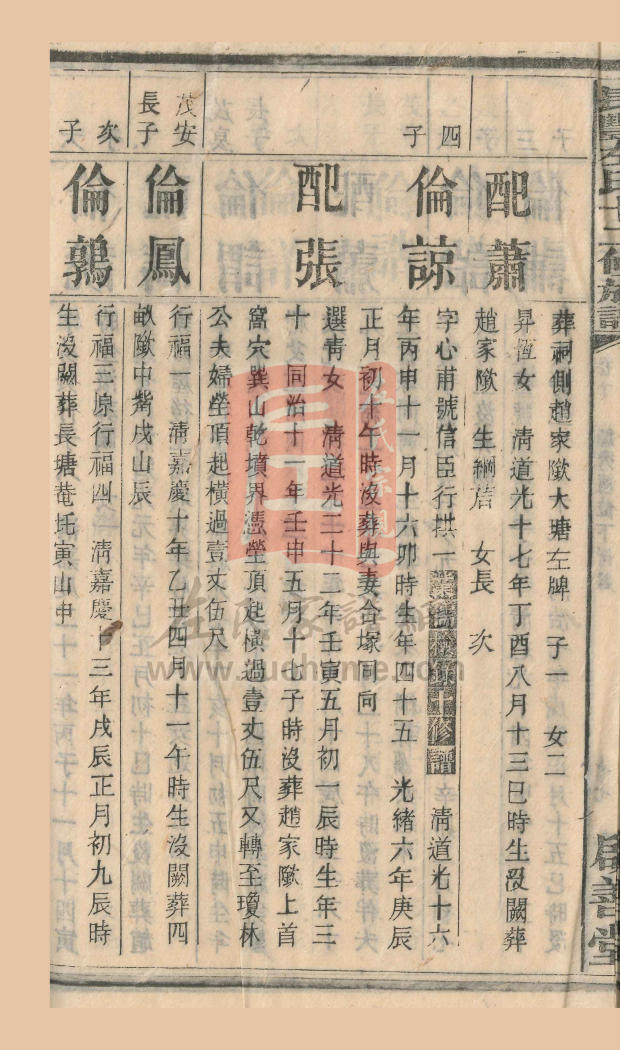 葬祠側趙家歟大塘左脾 子一 女二
配蕭
昇恆女 淸道光十七年丁酉八月十三巳時生沒闕葬
趙家歟 生綱 女長 次
四子
倫諒
字心甫號信臣行拱一 修譜 淸道光十六
年丙申十一月十六卯時生年四十五 光緒六年庚辰
正月初十午時沒葬與妻合塚同向
配張
選靑女 淸道光二十三年壬寅五月初一辰時生年三
十 同治十一年壬申五月十七子時沒葬趙家歟上首
窩穴巽山乾墳界憑塋頂起橫過壹丈伍尺又轉至瓊林
公夫婦塋頂起橫過壹丈伍尺
茂安長子
倫鳳
行福一 淸嘉慶十年乙丑四月十一午時生沒闕葬四
畝歟中嘴戌山辰
次子
倫鶉
行福三原行福四 淸嘉慶十三年戊辰正月初九辰時
生沒闕葬長塘菴坉寅山申
啟善堂
www.zuchyme.com